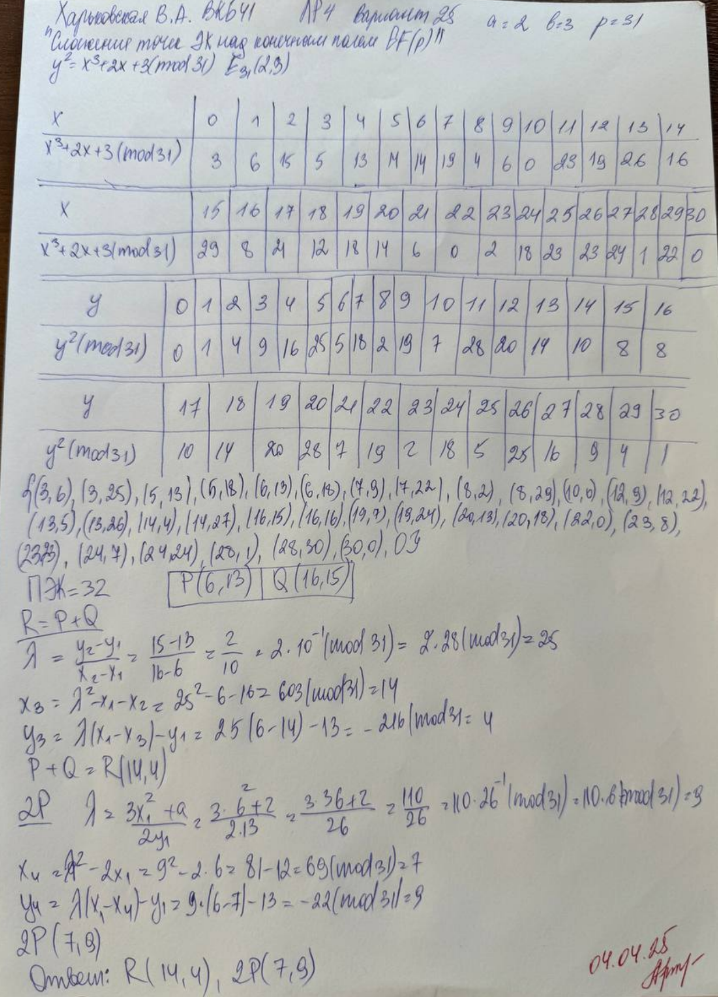 Харьковская В.А. ВКБ41 ЛР4 вариант 25 a=2 b=3 p=31
"Сложение точек ЭК над конечным полем GF(p)"
y²=x³+2x+3(mod 31) E₃₁(2,3)
x 0 1 2 3 4 5 6 7 8 9 10 11 12 13 14
x³+2x+3(mod 31) 3 6 15 5 13 14 14 19 4 6 0 23 19 26 16
x 15 16 17 18 19 20 21 22 23 24 25 26 27 28 29 30
x³+2x+3(mod 31) 29 8 21 12 18 14 6 0 2 18 23 23 24 1 22 0
y 0 1 2 3 4 5 6 7 8 9 10 11 12 13 14 15 16
y²(mod 31) 0 1 4 9 16 25 5 18 2 19 7 28 20 14 10 8 8
y 17 18 19 20 21 22 23 24 25 26 27 28 29 30
y²(mod 31) 10 14 20 28 7 19 2 18 5 25 16 9 4 1
{(3,6), (3,25), (5,13), (5,18), (6,13), (6,18), (7,9), (7,22), (8,2), (8,29), (10,0), (12,9), (12,22),
(13,5), (13,26), (14,4), (14,27), (16,15), (16,16), (19,7), (19,24), (20,13), (20,18), (22,0), (23,8),
(23,23), (24,7), (24,24), (28,1), (28,30), (30,0), O}
ПЭК=32 P(6,13) Q(16,15)
R=P+Q
λ = y₂-y₁/x₂-x₁ = 15-13/16-6 = 2/10 = 2·10⁻¹(mod 31) = 2·28(mod 31) = 25
x₃ = λ²-x₁-x₂ = 25²-6-16 = 603(mod 31) = 14
y₃ = λ(x₁-x₃)-y₁ = 25(6-14)-13 = -216(mod 31 = 4
P+Q=R(14,4)
2P λ = 3x₁²+a/2y₁ = 3·6²+2/2·13 = 3·36+2/26 = 110/26 = 110·26⁻¹(mod 31) = 110·6(mod 31) = 9
x₄ = λ²-2x₁ = 9²-2·6 = 81-12 = 69(mod 31) = 7
y₄ = λ(x₁-x₄)-y₁ = 9·(6-7)-13 = -22(mod 31) = 9
2P(7,9)
Ответ: R(14,4), 2P(7,9)
04.04.25